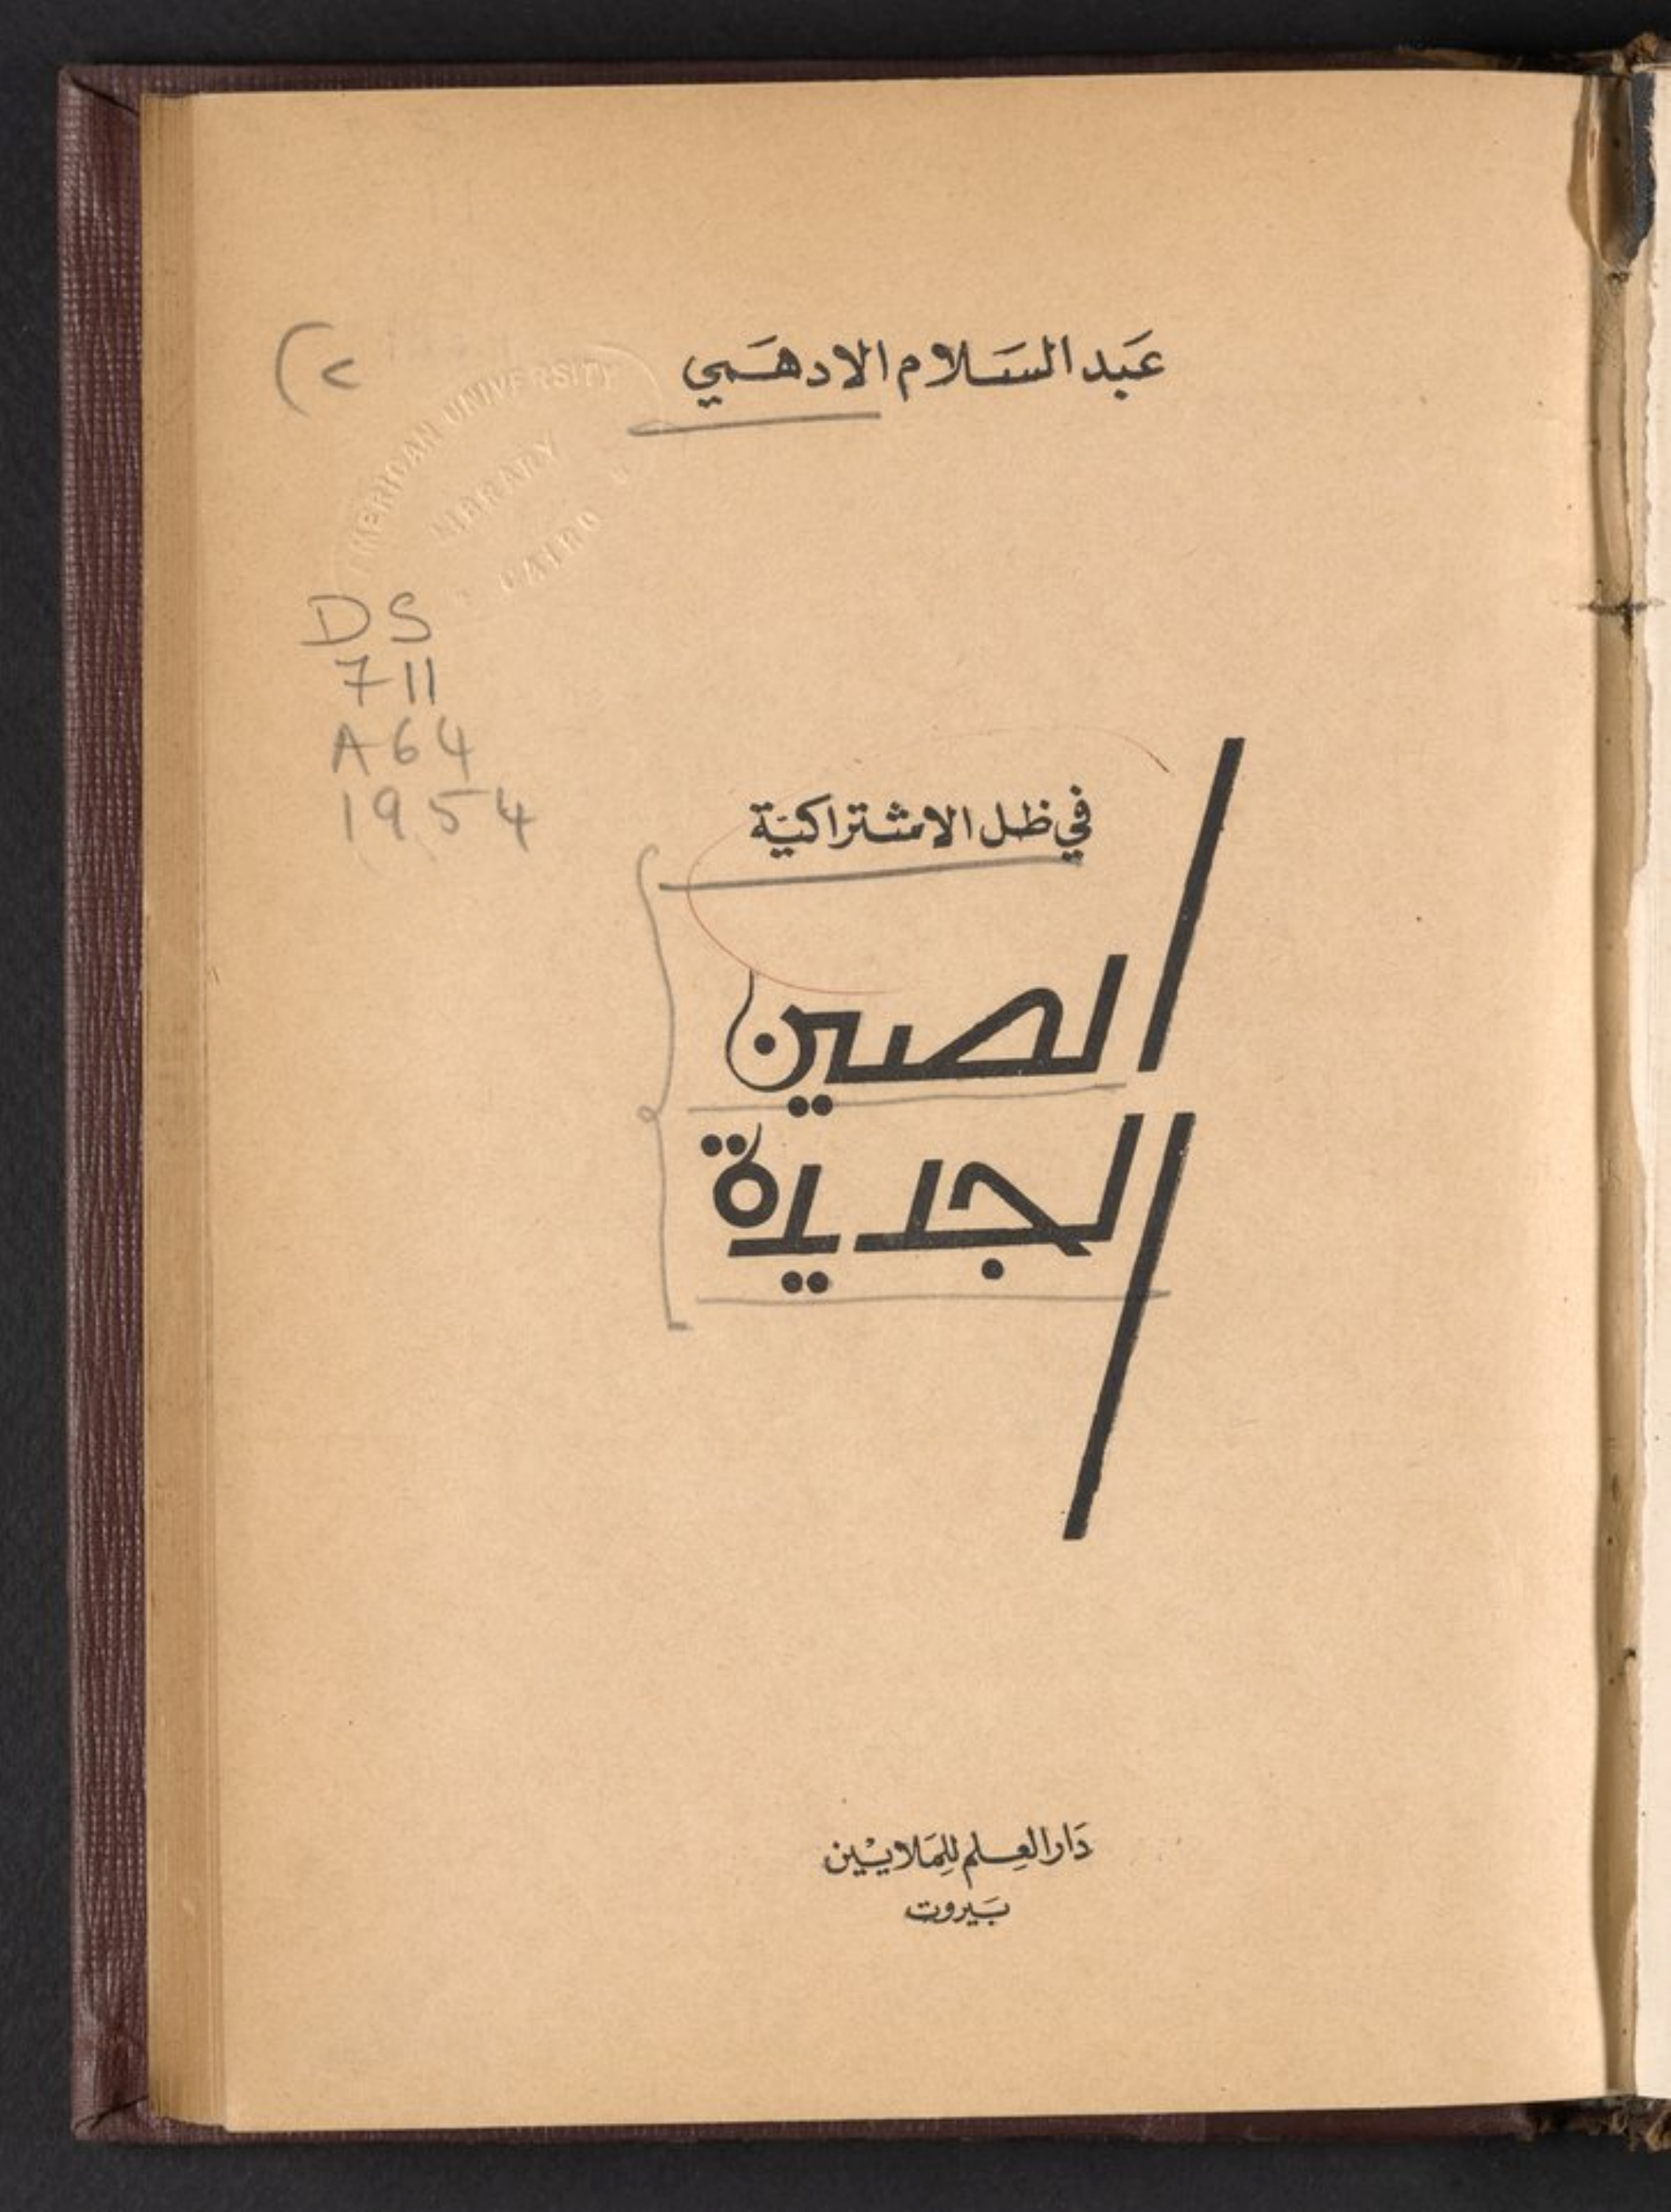 عَبد السَّلام الادهَمي
AMERICAN UNIVERSITY
LIBRARY
CAIRO
DS
711
A64
1954
في ظل الاشتراكيَّة
الصين
الجديدة
دَار العِلم للمَلاييْن
بَيروت